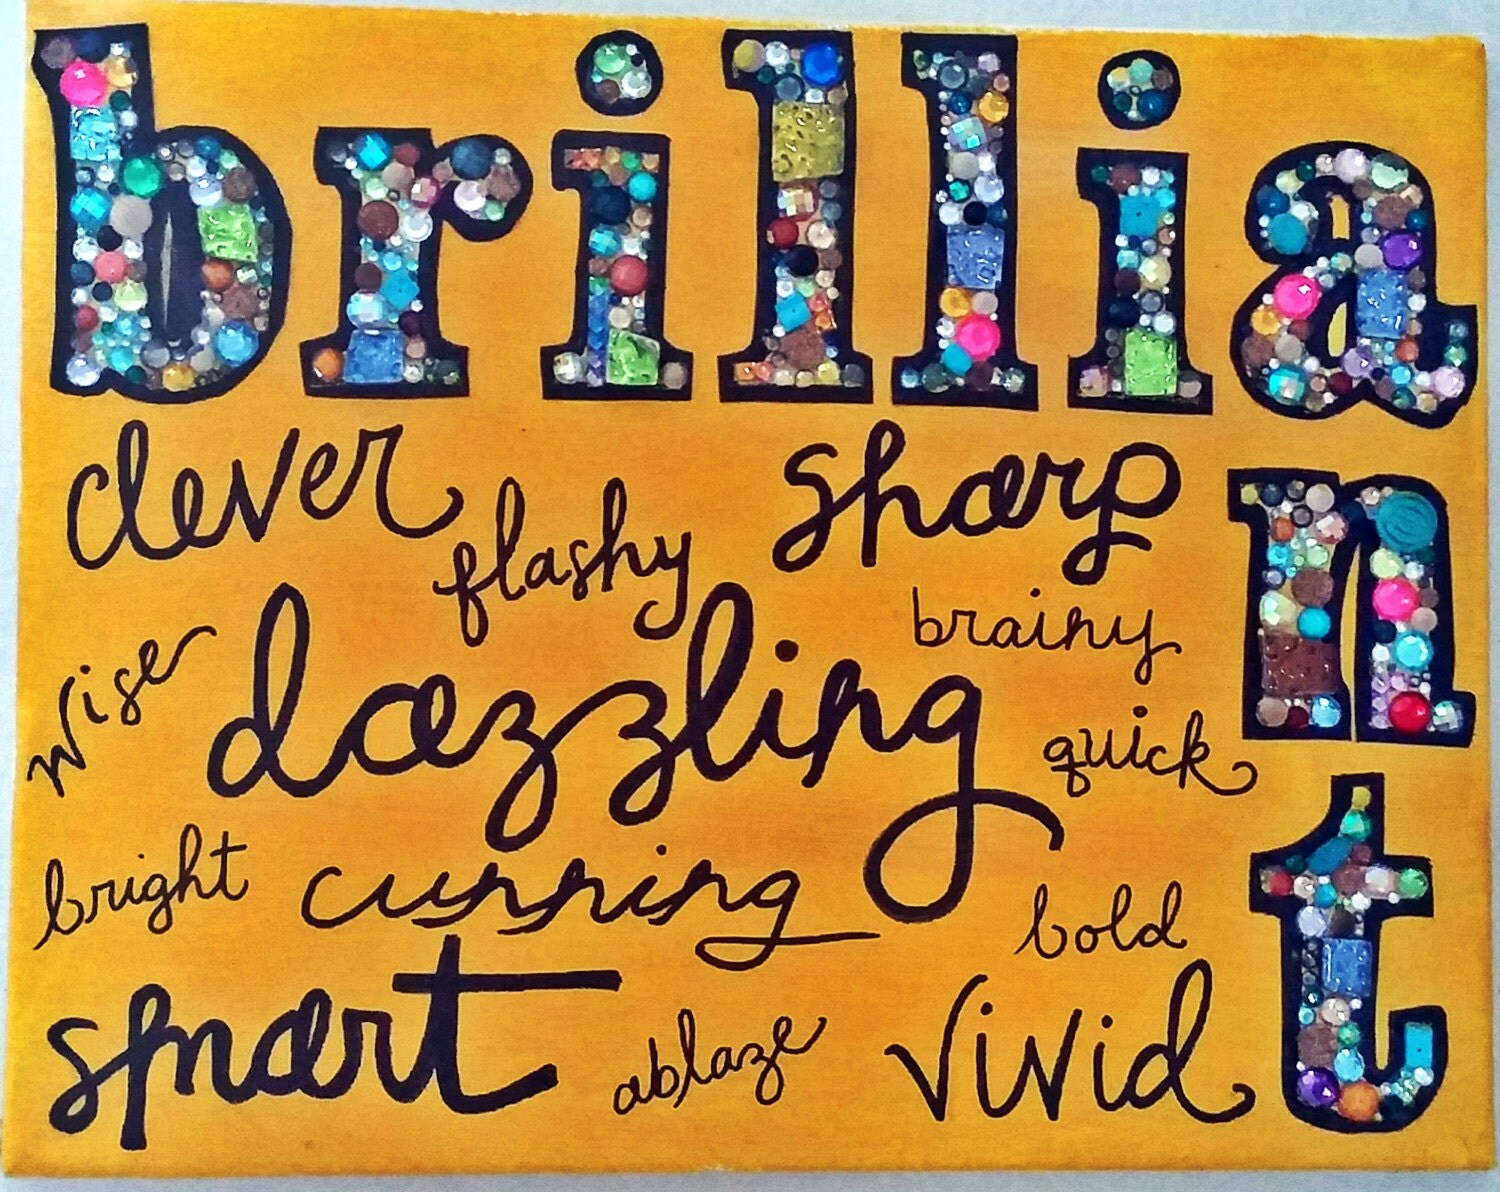 brilliant
clever
sharp
flashy
brainy
wise
dazzling
quick
bright
cunning
bold
smart
ablaze
vivid